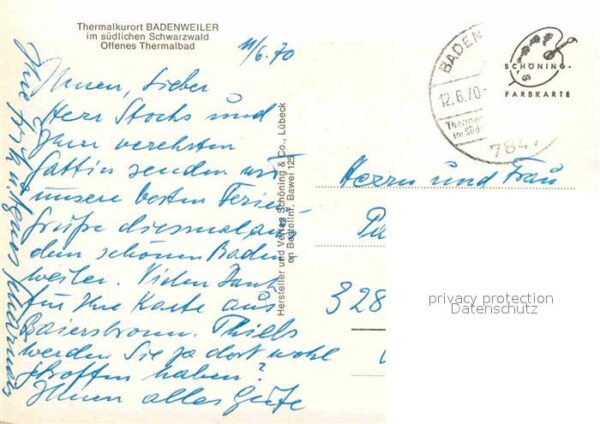 Thermalkurort BADENWEILER
im südlichen Schwarzwald
Offenes Thermalbad
11/6.70
Ihnen, Lieber
Herr Stochs und
Ihrer verehrten
Gattin senden wir
unsere besten Ferien
grüße diesmal aus
dem schönen Baden
weiler. Vielen Dank
für Ihre Karte aus
Baiersbronn. Thiels
werden Sie ja dort wohl
getroffen haben?
Ihnen alles Gute
Ihre
Hersteller und Verlag Schöning & Co., Lübeck
Bestellnr. Bawei 125
BADEN
12.6.70-
Thermal
im Süd
784
SCHÖNING-
FARBKARTE
Herrn und Frau
328
privacy protection
Datenschutz